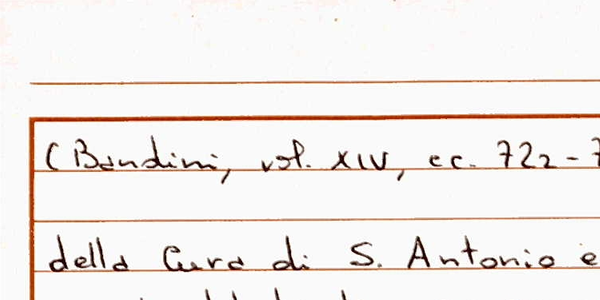 (Bandini, vol. XIV, cc. 722-7
della Cura di S. Antonio e